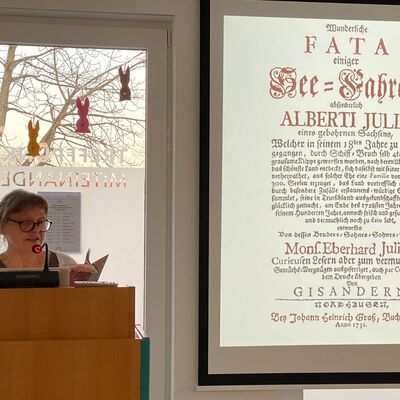 Wunderliche
FATA
einiger
See-Fahre
absonderlich
ALBERTI JULII
eines gebohrnen Sachsens,
Welcher in seinem 18den Jahre zu
gegangen, durch Schiff-Bruch selb
grausame Klippe geworffen worden, nach deren
das schönste Land entdeckt, sich daselbst mit seiner
verheyrathet, aus solcher Ehe eine Familie
300. Seelen erzeuget, das Land vortrefflich
durch besondere Zufälle erstaunens-würdige
sammlet, seine in Teutschland ausgekundschafften
glücklich gemacht, am Ende des 1728sten Jahres
seinem Hunderten Jahre, annoch frisch und
und vermuthlich noch zu dato lebt,
entworffen
Von dessen Bruders-Sohnes-Sohnes-
Mons. Eberhard Juli
Curieusen Lesern aber zum vermu
Gemüths-Vergnügen ausgefertiget, auch par
dem Drucke übergeben
Von
GISANDERN
NORDHAUSEN,
Bey Johann Heinrich Groß, Buch
Anno 1731.
MITEINANDER